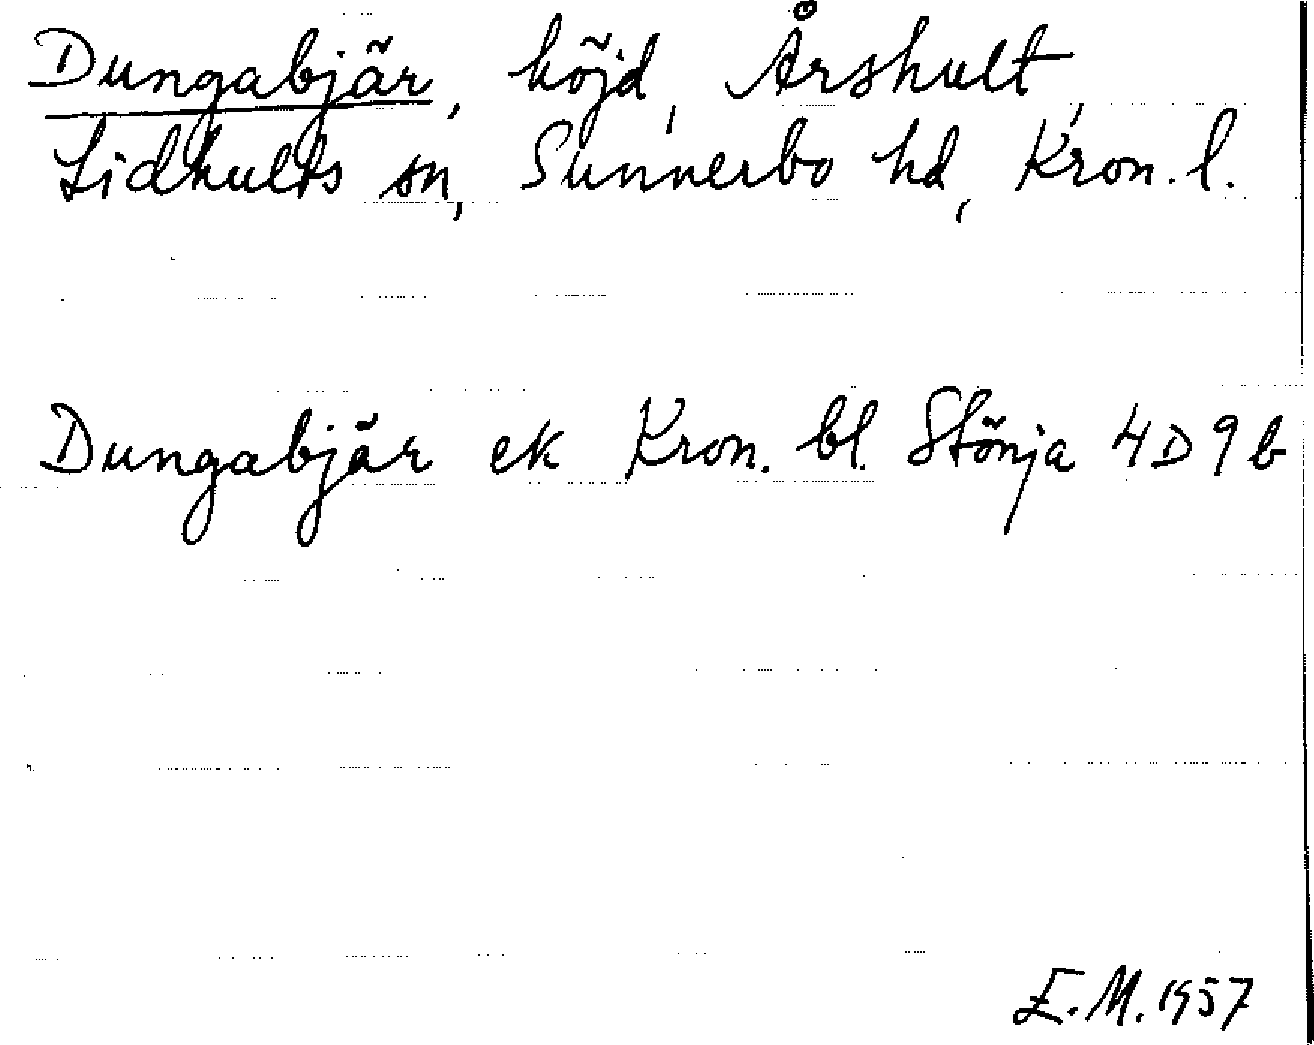 Dungabjär, höjd, Årshult,
Lidhults sn, Sunnerbo hd, Kron. l.
Dungabjär ek Kron. bl. Stönja 4D9b
E.M. 1957